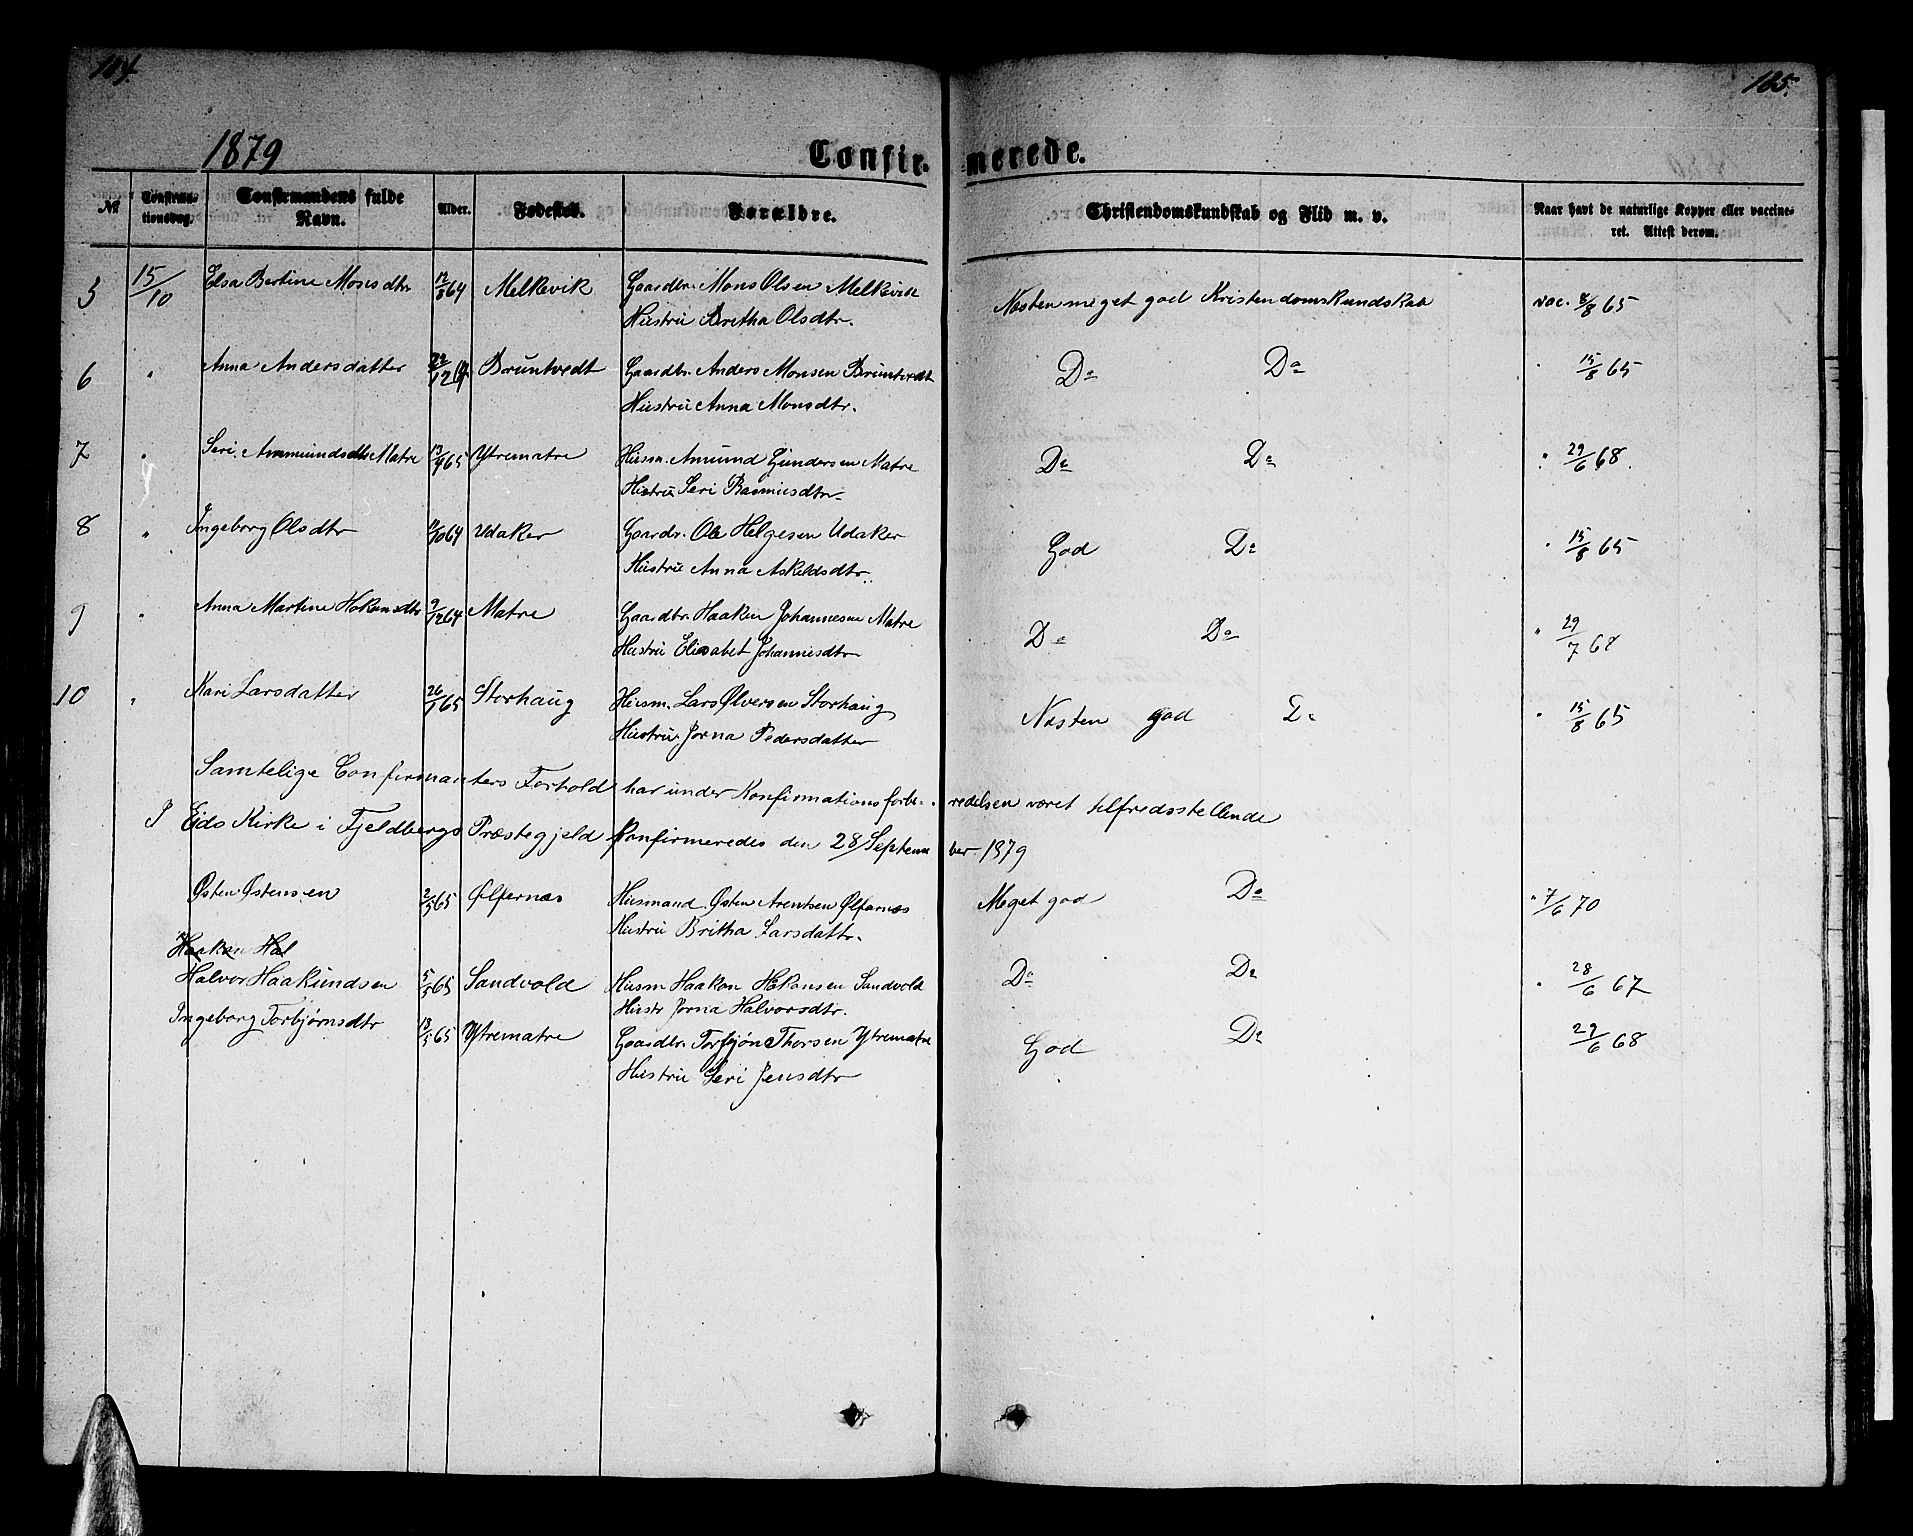 184.
185.
1879
Confir-
merede.
No.
Confirma-
tionsdag.
Confirmandens fulde
Navn.
Alder.
Fødested.
Forældre.
Christendomskundskab og Flid m. v.
Naar havt de naturlige Kopper eller vaccine-
ret. Attest derom.
5 15/10 Elsa Bertine Monsdtr 12/8 64 Melkevik Gaardbr. Mons Olsen Melkevik Næsten meget god Kristendomskundskab vac. 8/8 65
Hustru Britha Olsdtr.
6 " Anna Andersdatter 22/12 64 Bruntvedt Gaardbr. Anders Monsen Bruntvedt Do Do " 15/8 65
Hustru Anna Monsdtr.
7 " Seri Ammundsdtr Matre 13/4 65 Ytrematre Husm. Amund Gundersen Matre Do Do " 29/6 68.
Hustru Seri Rasmusdtr
8 " Ingeborg Olsdtr 11/10 64 Udaker Gaardr. Ole Helgesen Udaker God Do " 15/8 65
Hustru Anna Askeldsdtr.
9 " Anna Martine Hokansdtr 9/12 64 Matre Gaardbr. Haaken Johannesen Matre Do Do " 29/7 68
Hustru Elisabet Johannesdtr
10 " Kari Larsdatter 26/1 65 Storhaug Husm. Lars Ølversen Storhaug Næsten god Do " 15/8 65
Hustru Jorna Pedersdatter
Samtelige Confirmanters Forhold har under Konfirmationsforbe-redelsen været tilfredsstellende
I Eids Kirke i Fjeldbergs Præstegjeld konfirmeredes den 28 September 1879
Østen Østensen 2/3 65 Ølfernæs Husmand Østen Arentsen Ølfernæs Meget god Do " 7/6 70
Hustru Britha Larsdattr.
Haakon Hal
Halvor Haakundsen 5/5 65 Sandvold Husm Haakon Hokansen Sandvold Do Do " 28/6 67
Hustr Jorna Halvorsdtr.
Ingeborg Torbjørnsdtr 13/5 65 Ytrematre Gaardbr. Torbjøn Thorsen Ytrematre God Do 29/6 68
Hustru Seri Jensdtr